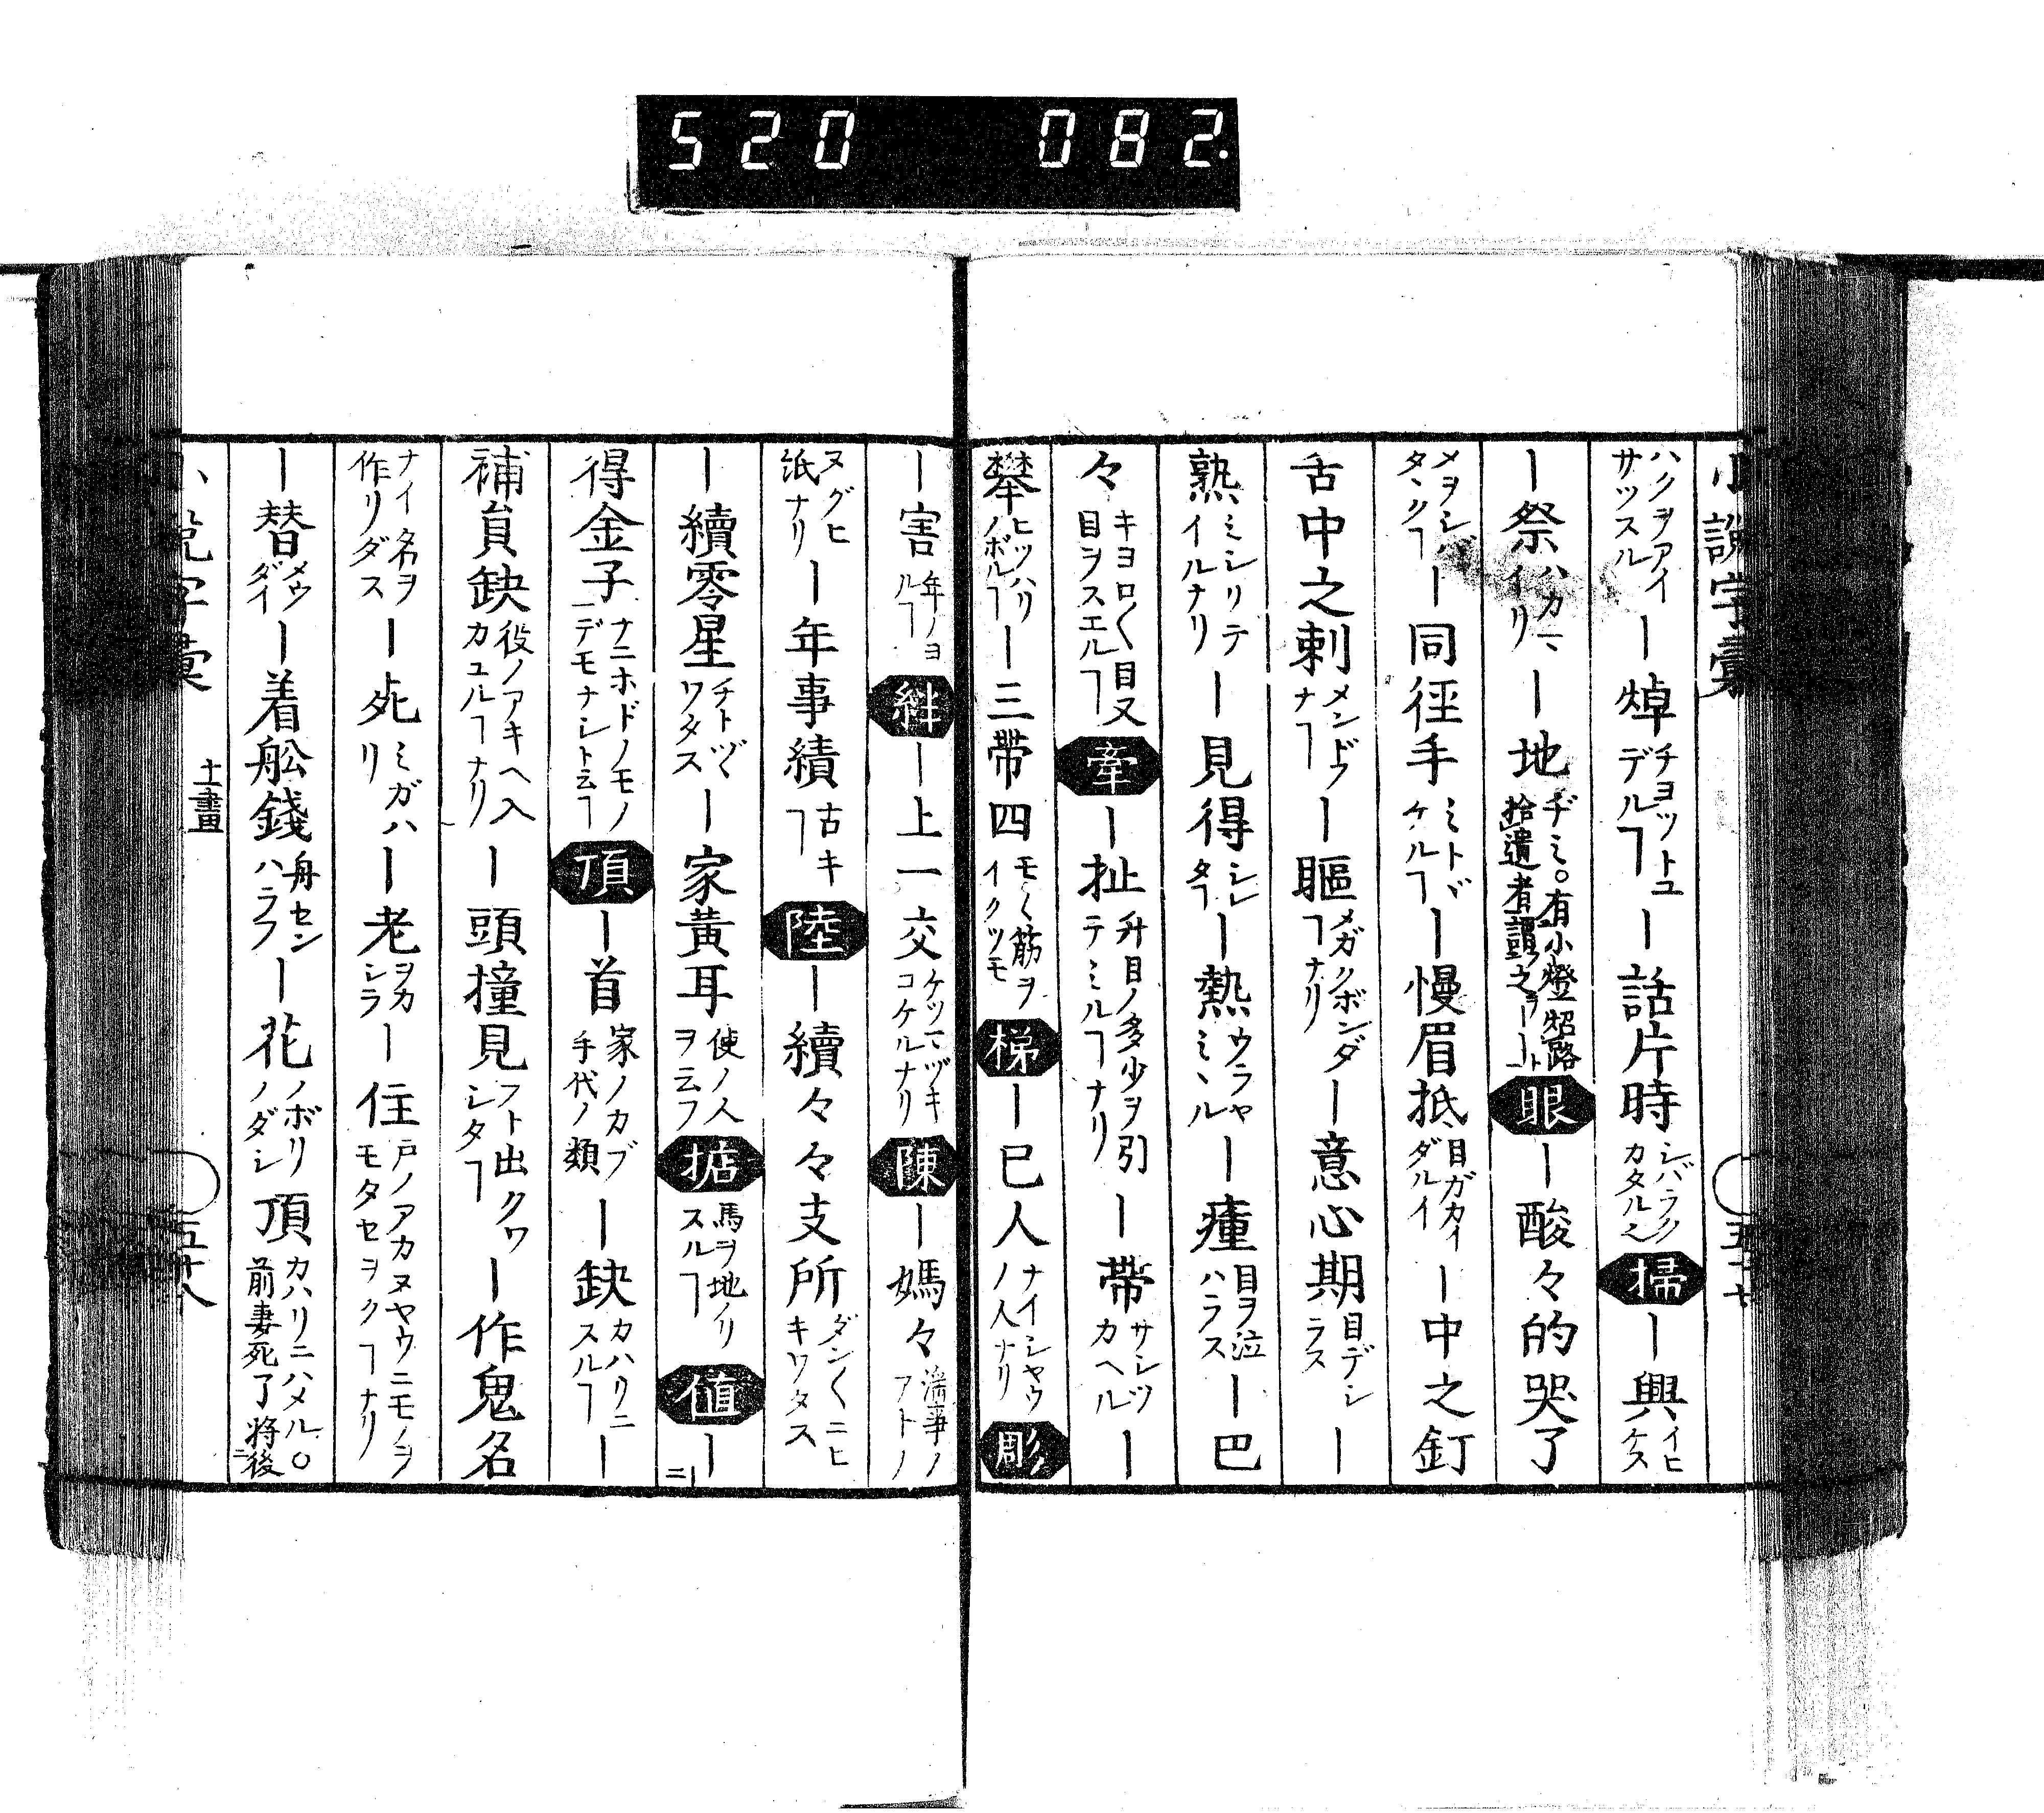 520 082.
小説字彙
ハクヲアイサツスル ー焯 チヨツトユデルヿ ー話片時 シバラクカタル 掃 ー興 イヒケス
ー祭 ハカマイリ ー地 ヂミ。有小燈照路拾遺者謂之ヲーート 眼 ー酸々的哭了
メヲシバタヽクヿ ー同徑手 ミトヾケルヿ ー慢眉抵 目ガカイダルイ ー中之釘
舌中之刺 メンドウナヿ ー䁱 メガクボンダヿナリ ー意心期 目デシラス ー
熟 ミシリテイルナリ ー見得 シレタヿ ー熱 ウラヤミヽル ー瘇 目ヲ泣ハラス ー巴
々 キヨロ〱目又目ヲスエルヿ 牽 ー扯 升目ノ多少ヲ引テミルヿナリ ー帶 サシツカヘル ー
攀 ヒツハリノボルヿ ー三帶四 モ〱筋ヲイクツモ 梯 ー已人 ナイシヤウノ人ナリ 彫
ー害 年ノヨルヿ 絆 ー上一交 ケツマヅキコケルナリ 陳 ー媽々 濟事ノアトノ
ヌグヒ紙ナリ ー年事績 古キヿ 陸 ー續々々支所 ダン〱ニヒキワタス
ー續零星 チトヅヽワタス ー家黄耳 使ノ人ヲ云フ 掂 馬ヲ地ノリスルヿ 値 ー
得金子 ナニホドノモノデモナシト云ヿ 頂 ー首 家ノカブ手代ノ類 ー缺 カハリニスルヿ ー
補貟缺 役ノアキヘ入カユルヿナリ ー頭撞見 フト出クワシタヿ ー作鬼名
ナイ名ヲ作リダス ー死 ミガハリ ー老 ヲカシラ ー住 戸ノアカヌヤウニモノヲモタセヲクヿナリ
ー替 メウダイ ー着舩錢 舟センハラフ ー花 ノボリノダシ 頂 カハリニハメル。前妻死了將後
小説字彙 十一畫 五十八